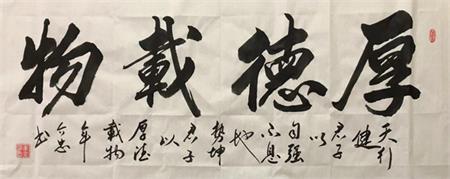 厚德載物
天行
健
君子
以
自强
不息
地
势坤
君子
以
厚德
載物
年
书